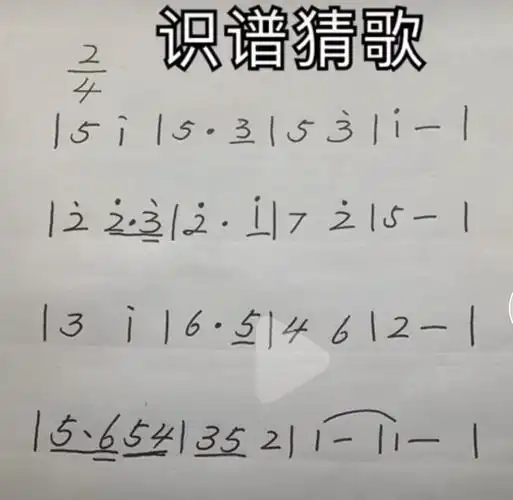 识谱猜歌
2/4
|5 i̇ |5· 3̲ |5 3̇ |i̇ – |
|2̇ 2̲̇·3̳̇|2̇· i̲̇|7 2̇ |5 – |
|3 i̇ |6· 5̲|4 6 |2 – |
|5̲·6̳ 5̲4̲|3̲5̲ 2|1 – |1 – |